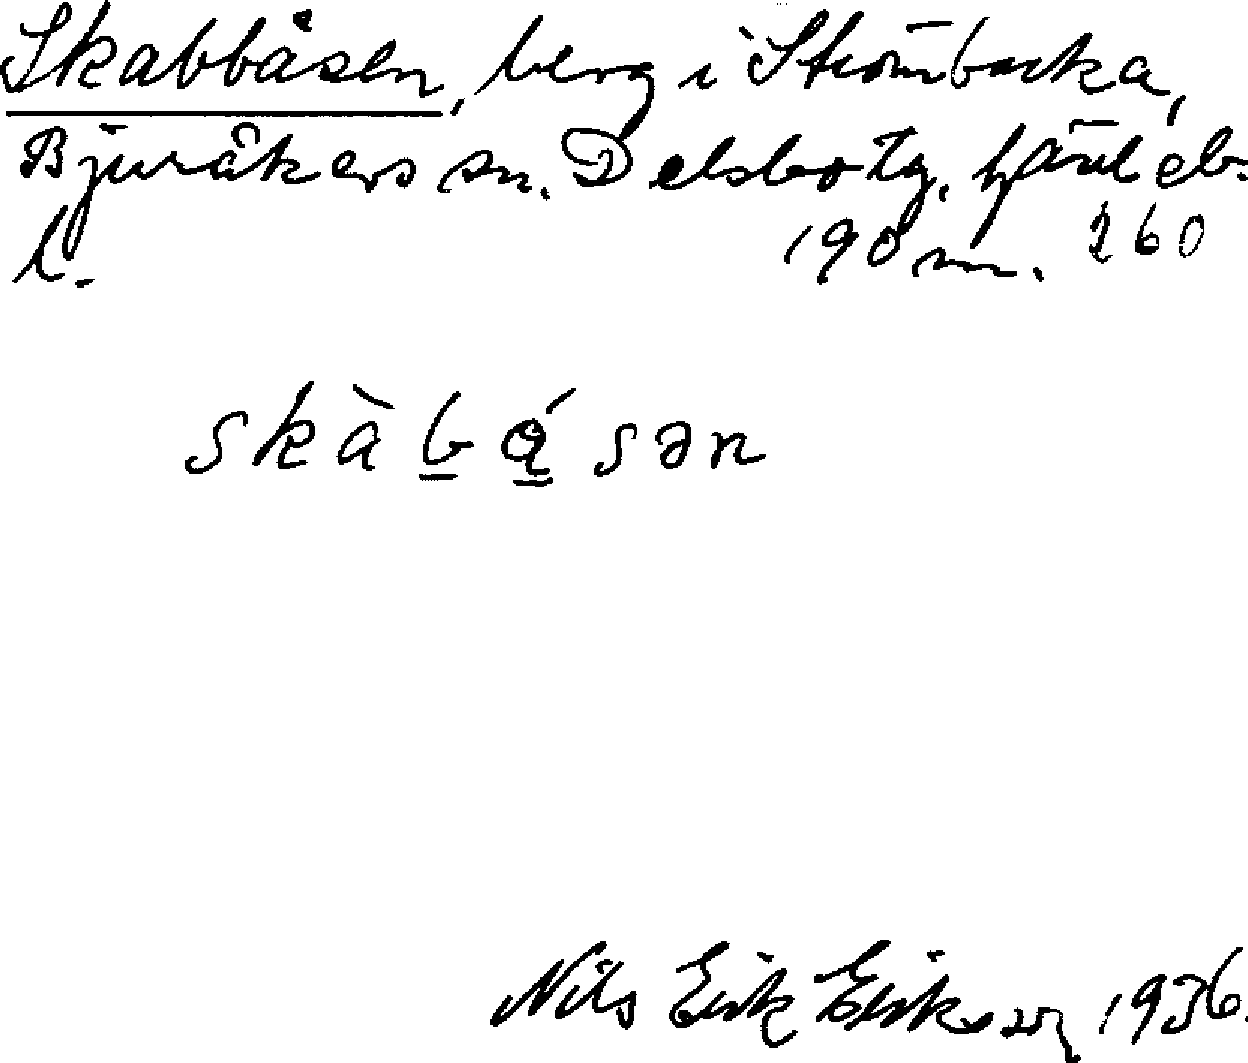 Skabbåsen, berg i Strömbacka,
Bjuråkers sn. Delsbo tg. Gävleb.
l. 190 m. 260
skàbǻsən
Nils Erik Eriksson 1936.